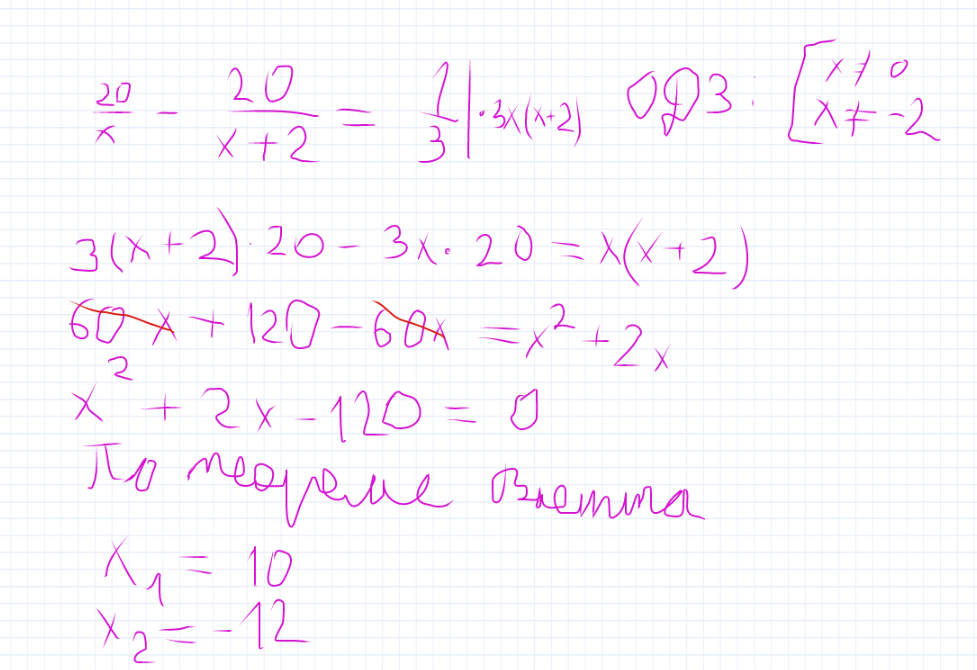 20/x - 20/(x+2) = 1/3 | ·3x(x+2) ОДЗ: [x ≠ 0 x ≠ -2
3(x+2)·20 - 3x·20 = x(x+2)
60x + 120 - 60x = x² + 2x
x² + 2x - 120 = 0
По теореме Виетта
x₁ = 10
x₂ = -12